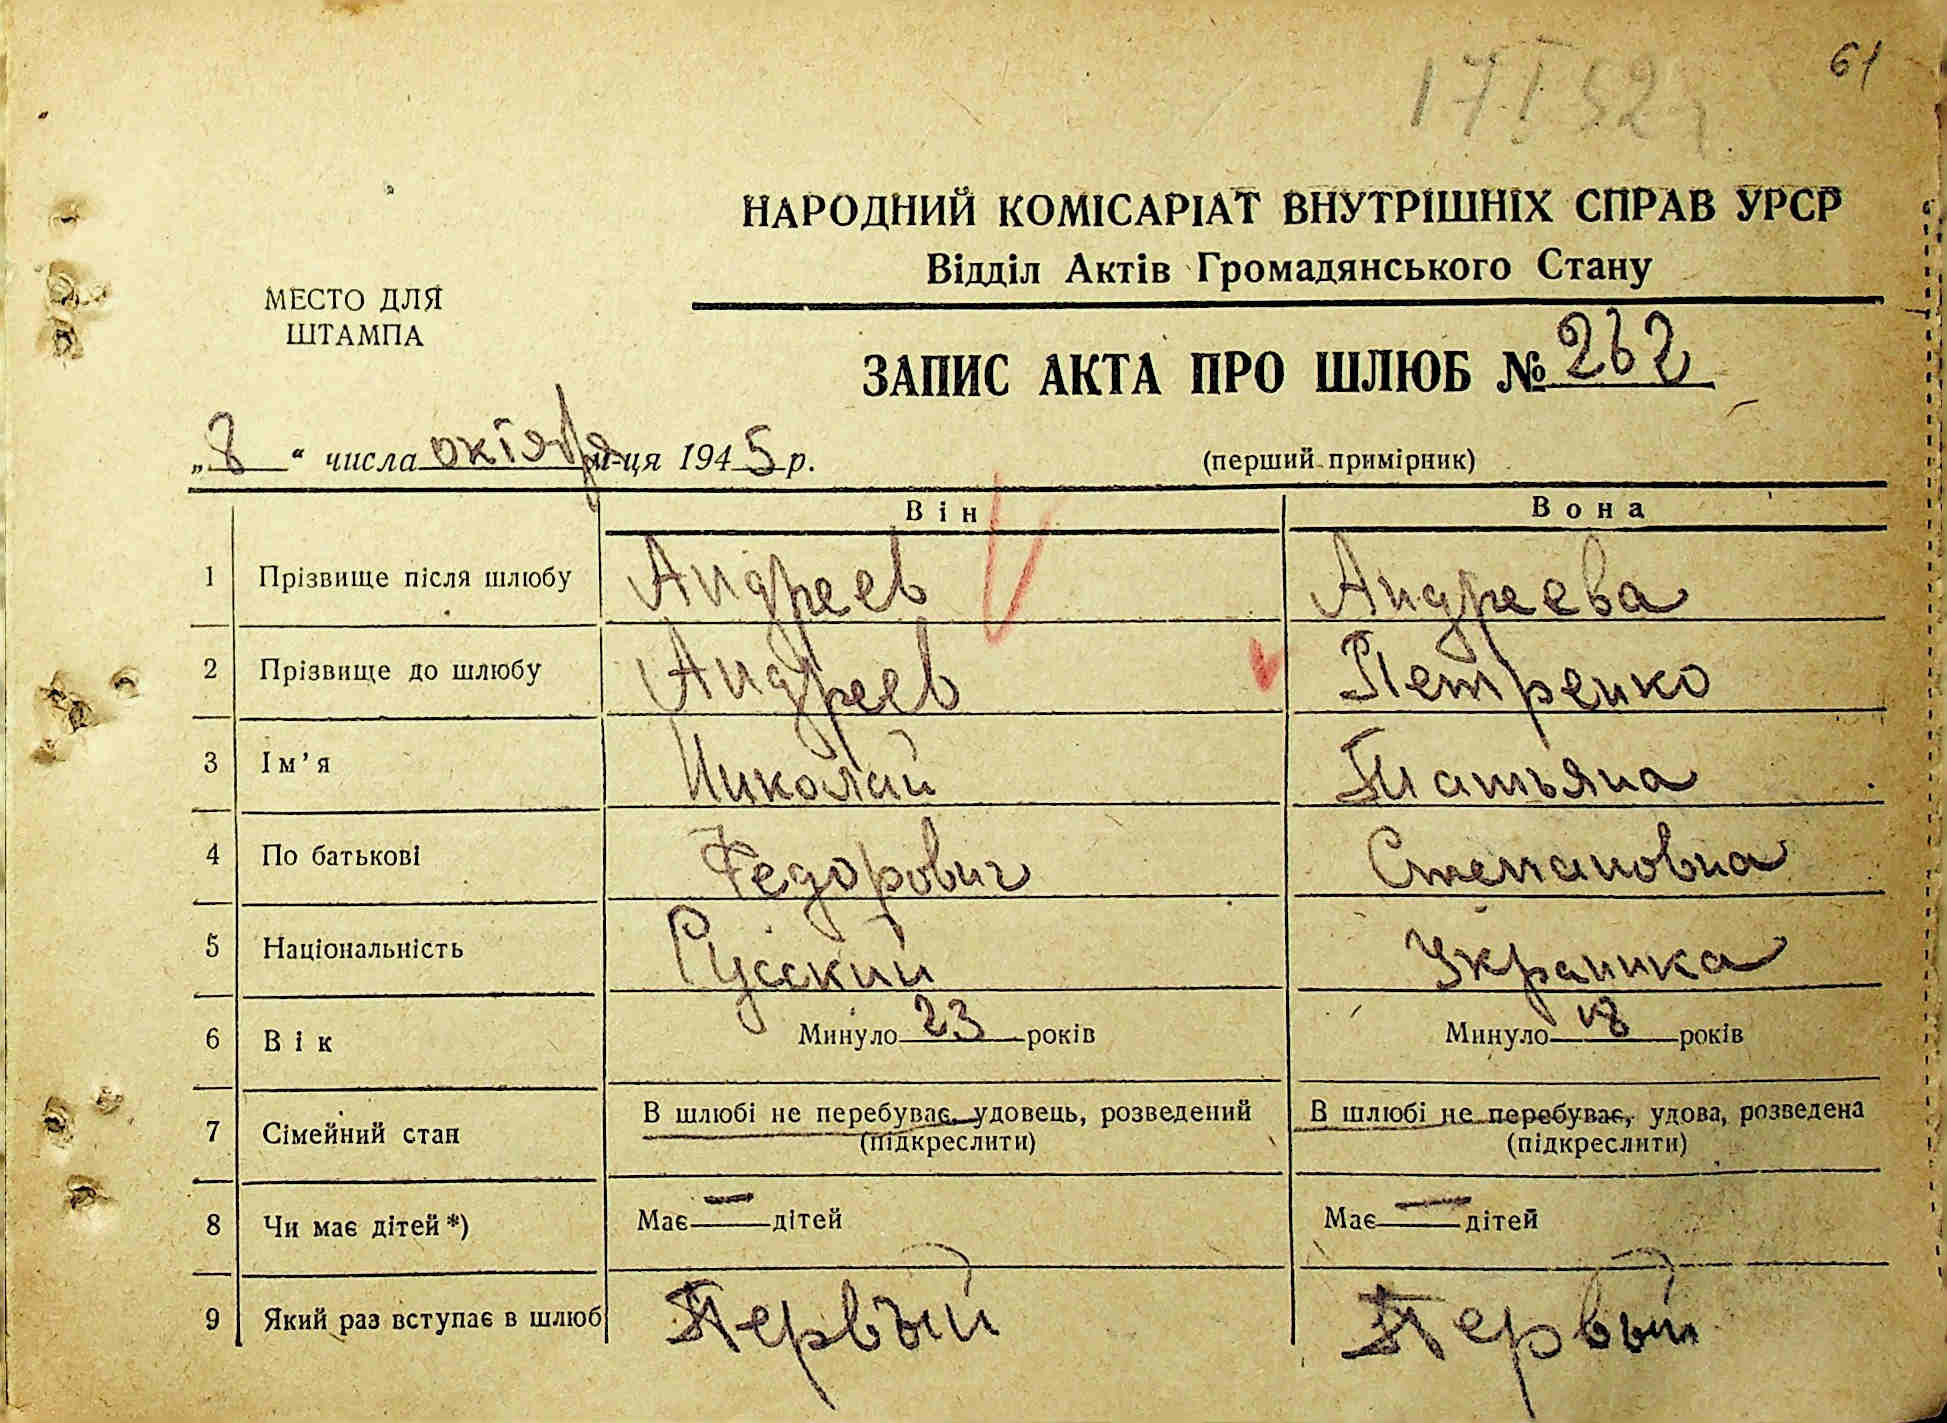 61
17 I 52 г
НАРОДНИЙ КОМІСАРІАТ ВНУТРІШНІХ СПРАВ УРСР
Відділ Актів Громадянського Стану
МЕСТО ДЛЯ
ШТАМПА
ЗАПИС АКТА ПРО ШЛЮБ № 262
„8“ числа октября м-ця 1945 р.
(перший примірник)
Він Вона
1 Прізвище після шлюбу Андреев Андреева
2 Прізвище до шлюбу Андреев Петренко
3 Ім’я Николай Татьяна
4 По батькові Федорович Степановна
5 Національність Русский Украинка
6 Вік Минуло 23 років Минуло 18 років
7 Сімейний стан В шлюбі не перебуває, удовець, розведений В шлюбі не перебуває, удова, розведена
(підкреслити) (підкреслити)
8 Чи має дітей*) Має — дітей Має — дітей
9 Який раз вступає в шлюб Первый Первый